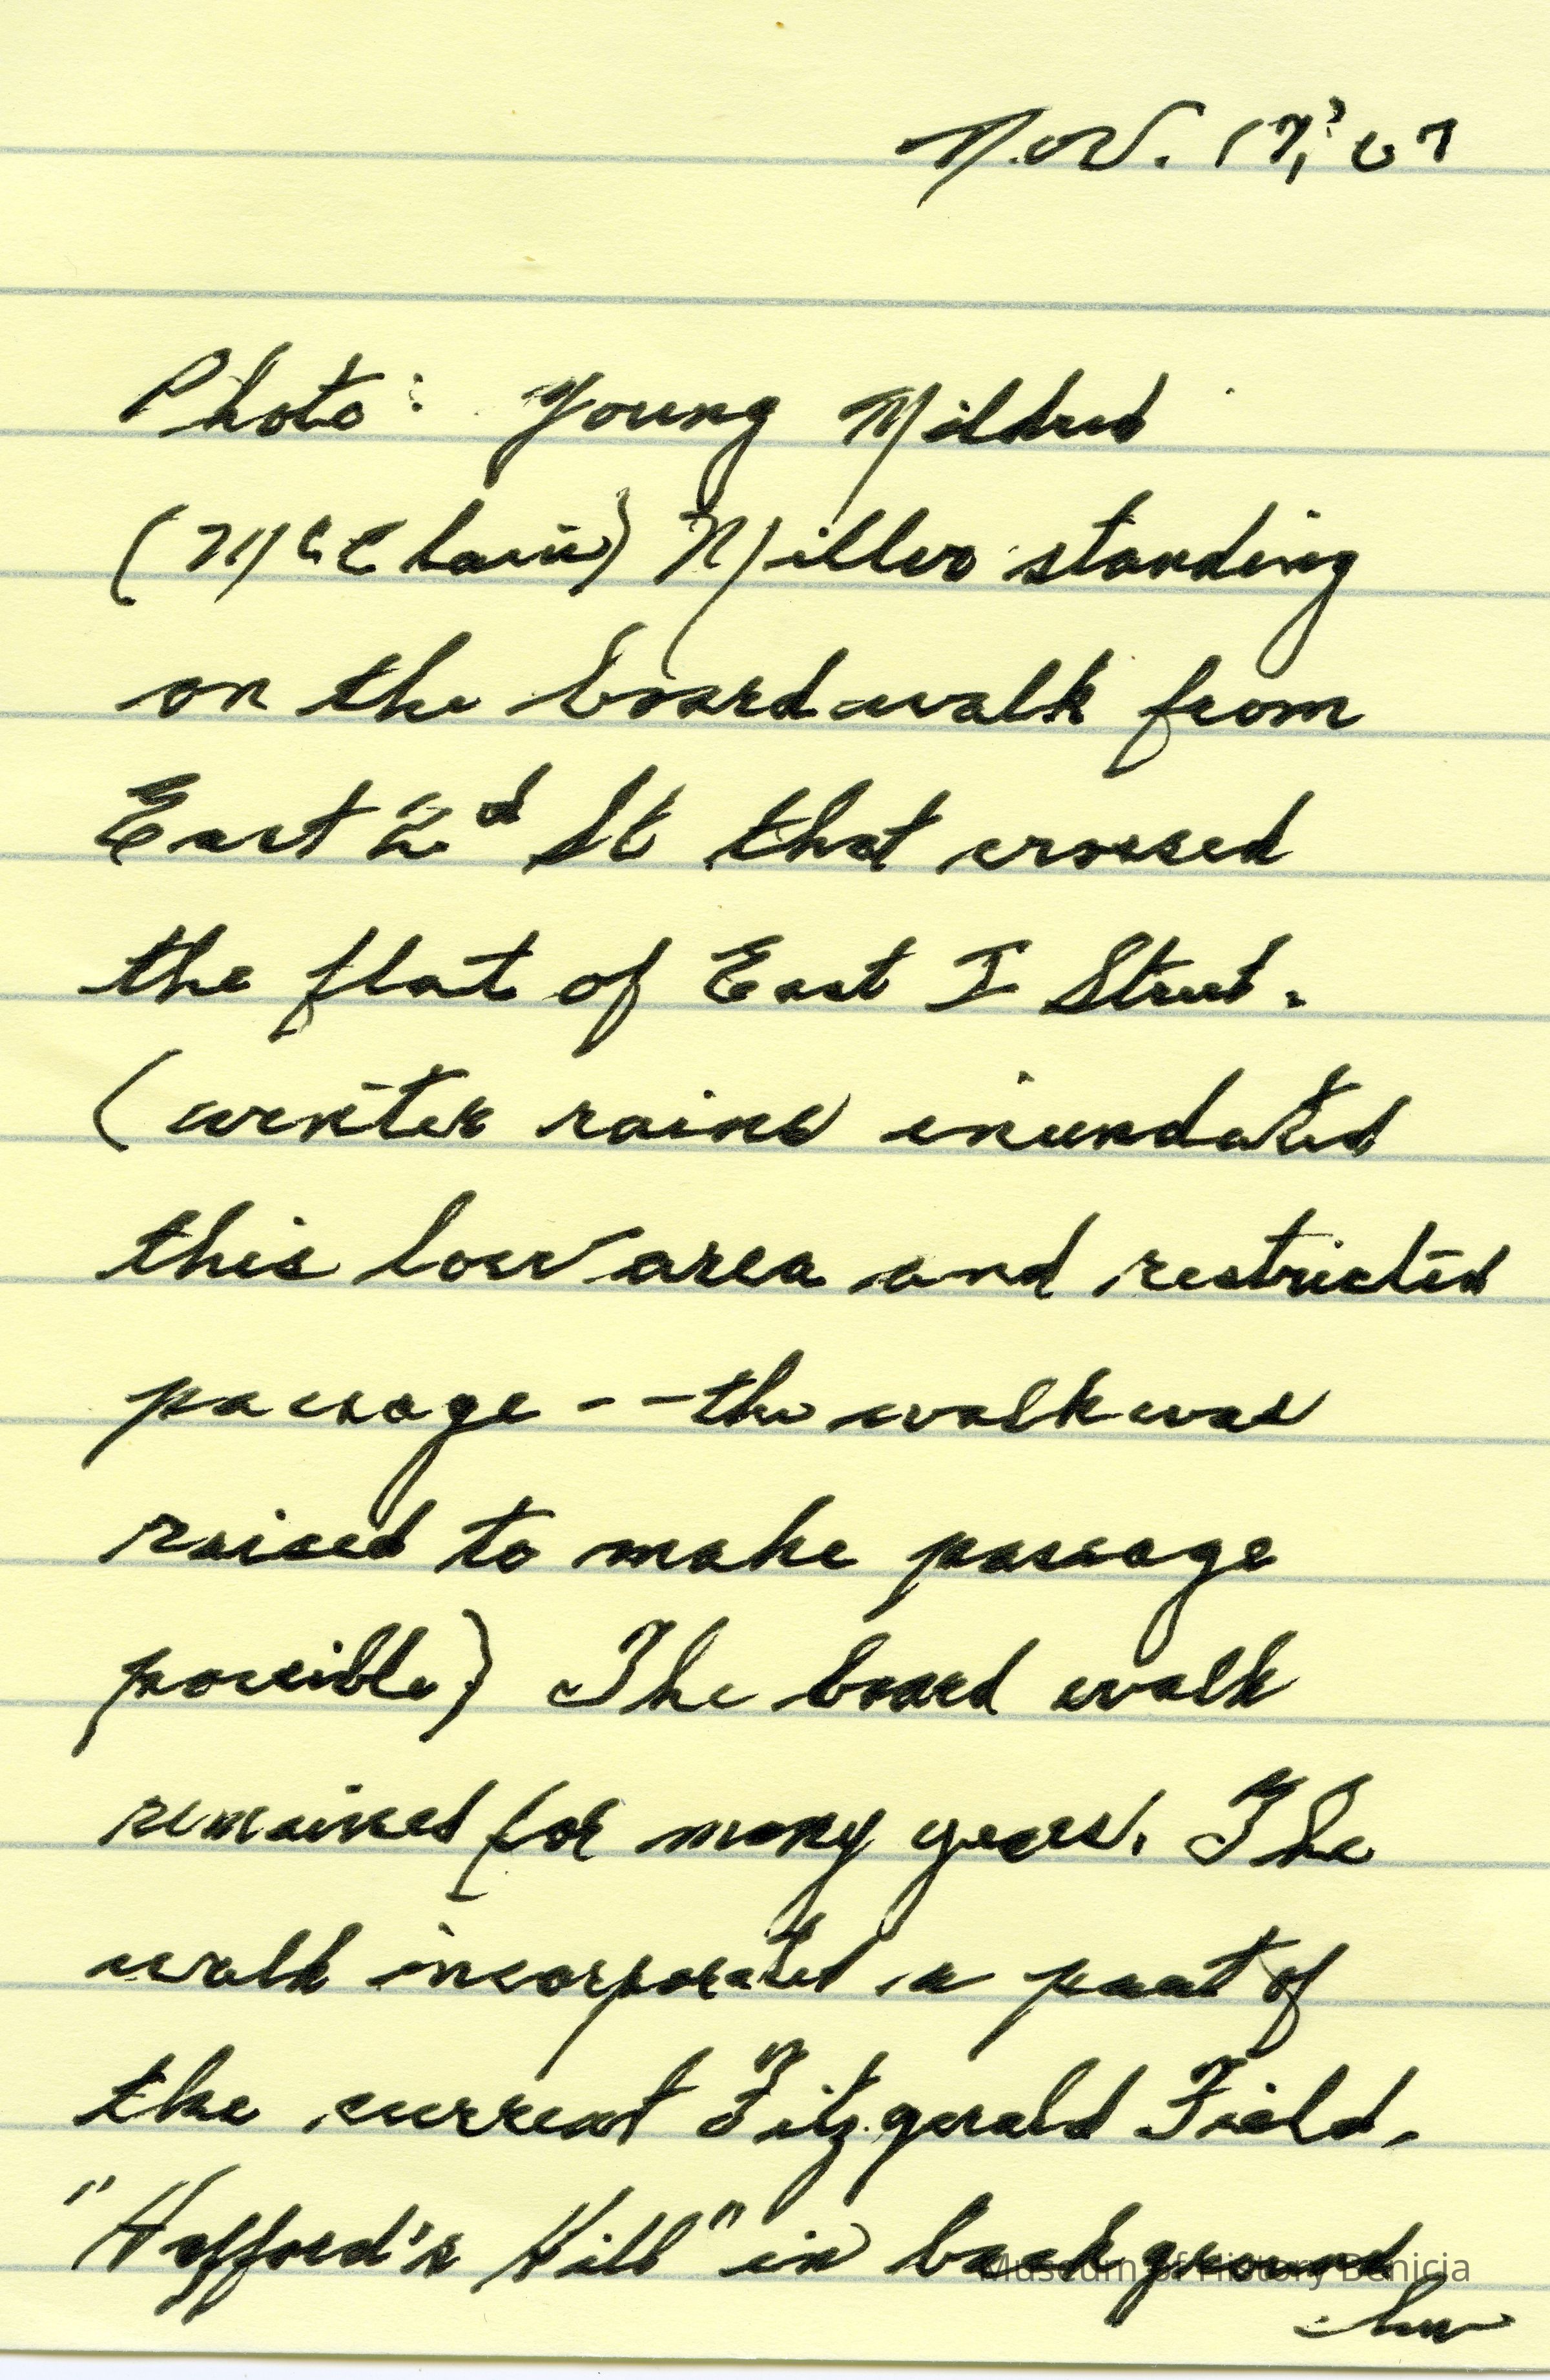 Nov. 17, '07
Photo: Young Mildred
(McClain) Miller standing
on the boardwalk from
East 2d St that crossed
the flat of East I Street.
(winter rains inundated
this low area and restricted
passage -- the walk was
raised to make passage
possible) The board walk
remained for many years. The
walk incorporated a part of
the current Fitzgerald Field.
"Hafford's Hill" in background
Museum of History Benicia